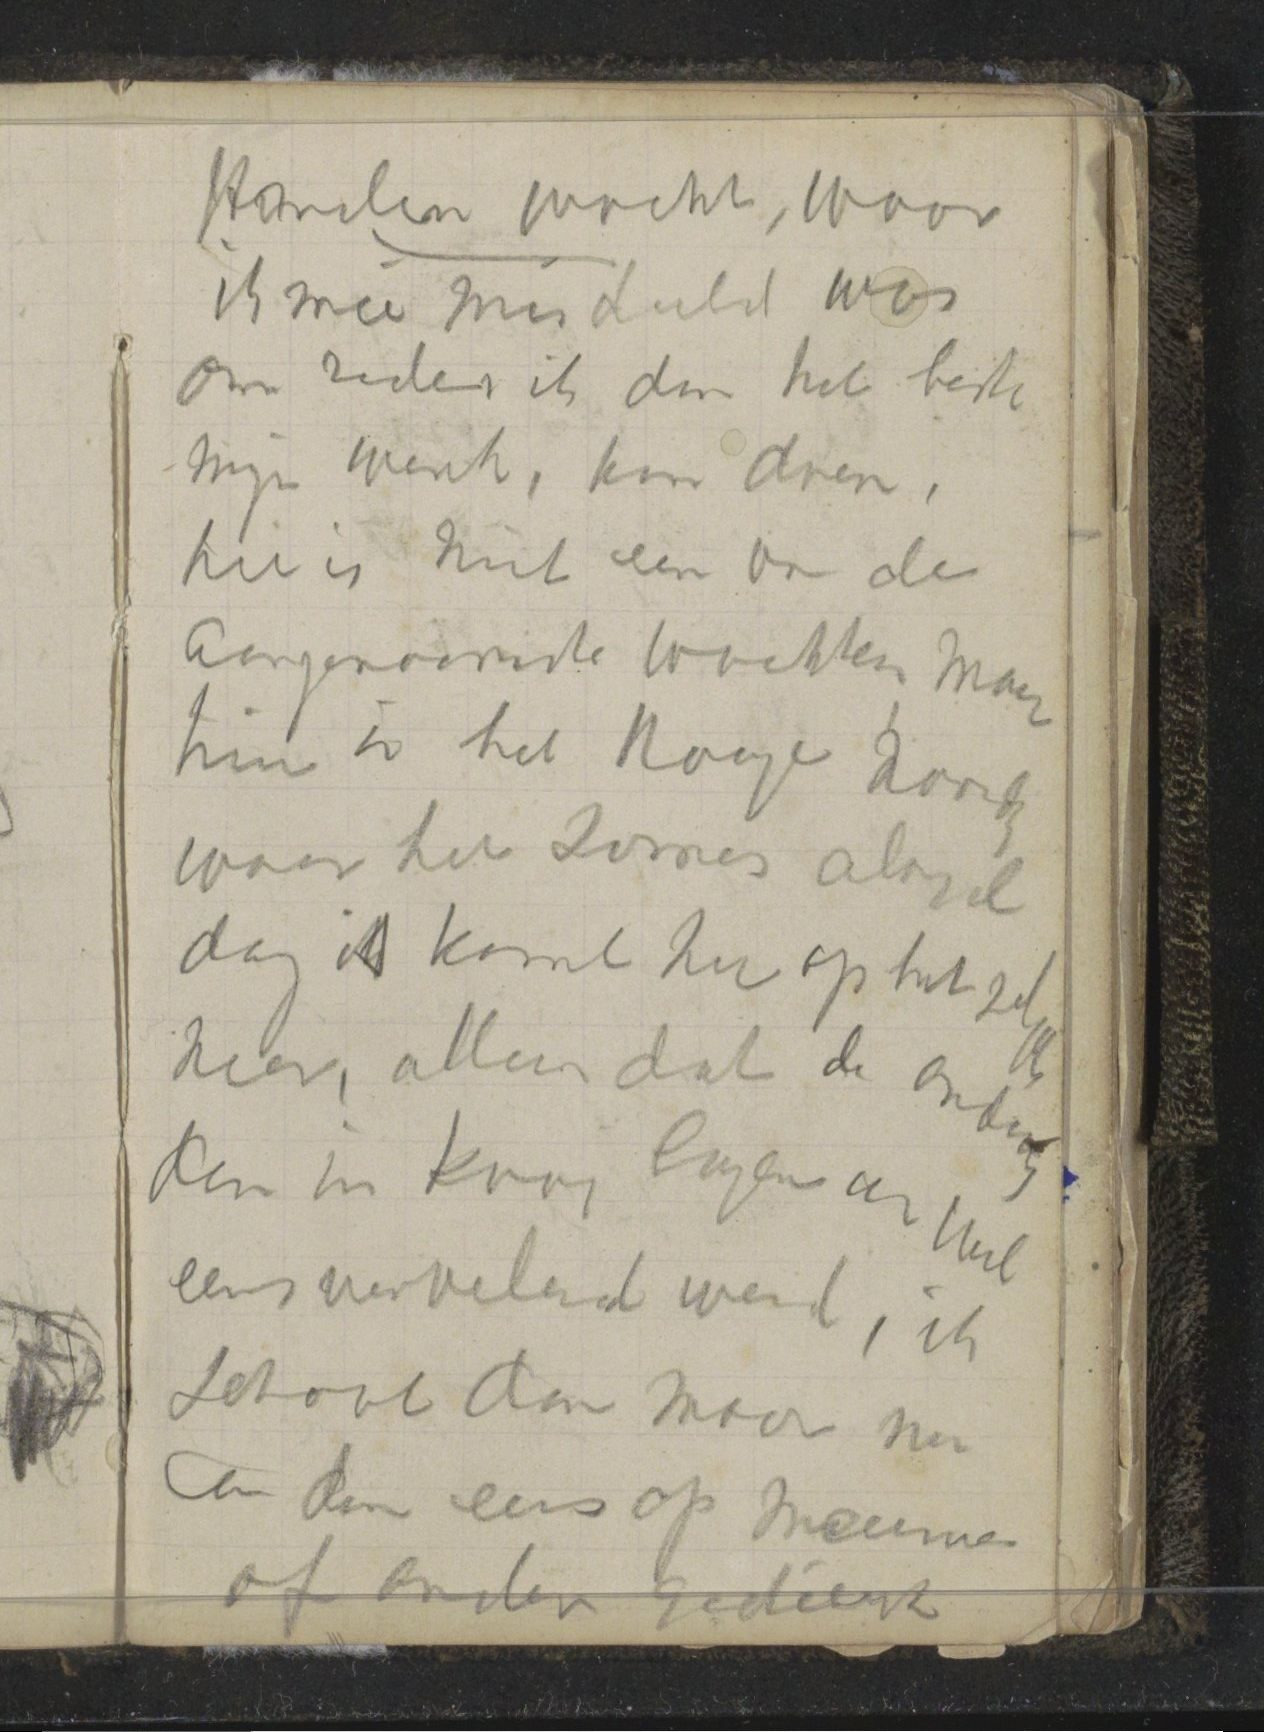 Honden wacht, waar
ik mee misdeeld was
om reden ik dan het beste
mijn werk, kon doen,
het is niet een van de
aangenaamste wachten, maar
hier in het Hooge Noord
waar het Zomers altijd
dag is komt het op het zelfde
neer, alleen dat de anderen
dan in kooi lagen en wel
eens vervelend werd, ik
schoot dan maar nu
en dan eens op meeuwen
of ander gedierte